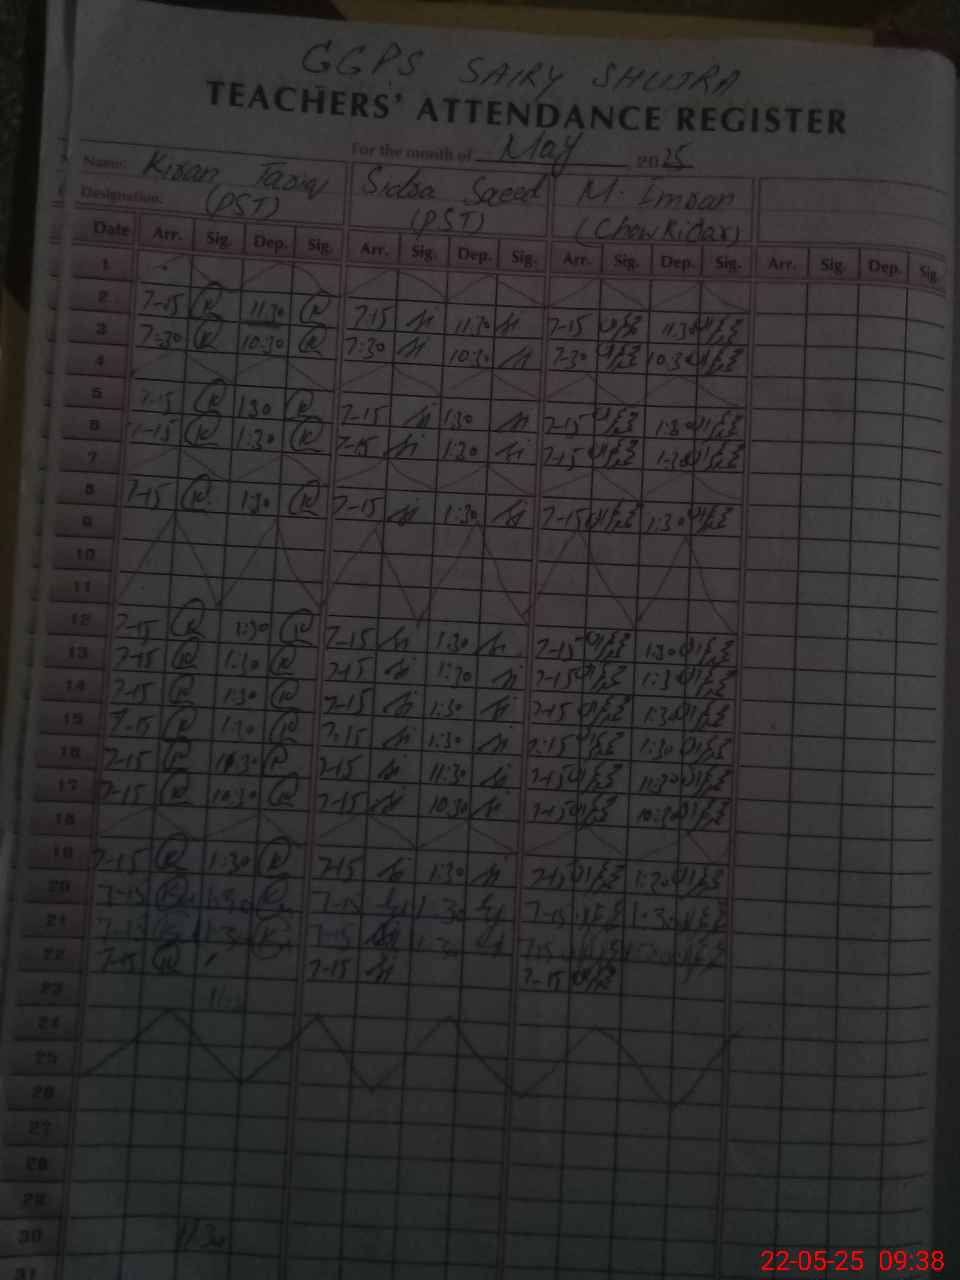 GGPS SAIRY SHUTRA
TEACHERS' ATTENDANCE REGISTER
For the month of May 2025
Name: Kiran Tariq Sidra Saeed M. Imran
Designation: (PST) (PST) (Chowkidar)
Date Arr. Sig. Dep. Sig. Arr. Sig. Dep. Sig. Arr. Sig. Dep. Sig. Arr. Sig. Dep. Sig.
1
2 7-15 11:30 7:15 11:30 7-15 11:30
3 7:30 10:30 7:30 10:30 7-30 10:30
4
5 7-15 1:30 7-15 1:30 7-15 1:30
6 7-15 1:30 7-15 1:30 7-15 1:30
7
8 7-15 1:30 7-15 1:30 7-15 1:30
9
10
11
12 7-15 1:30 7-15 1:30 7-15 1:30
13 7-15 1:30 7-15 1:30 7-15 1:30
14 7-15 1:30 7-15 1:30 7-15 1:30
15 7-15 1:30 7:15 1:30 7:15 1:30
16 7-15 11:30 7-15 11:30 7-15 11:30
17 7-15 10:30 7-15 10:30 7-15 10:30
18
19 7-15 1:30 7-15 1:30 7-15 1:30
20 7-15 1:30 7-15 1:30 7-15 1:30
21 7-15 1:30 7-15 1:30 7-15
22 7-15 7-15 7-15
23
24
25
26
27
28
29
30 11:30
31
22-05-25 09:38